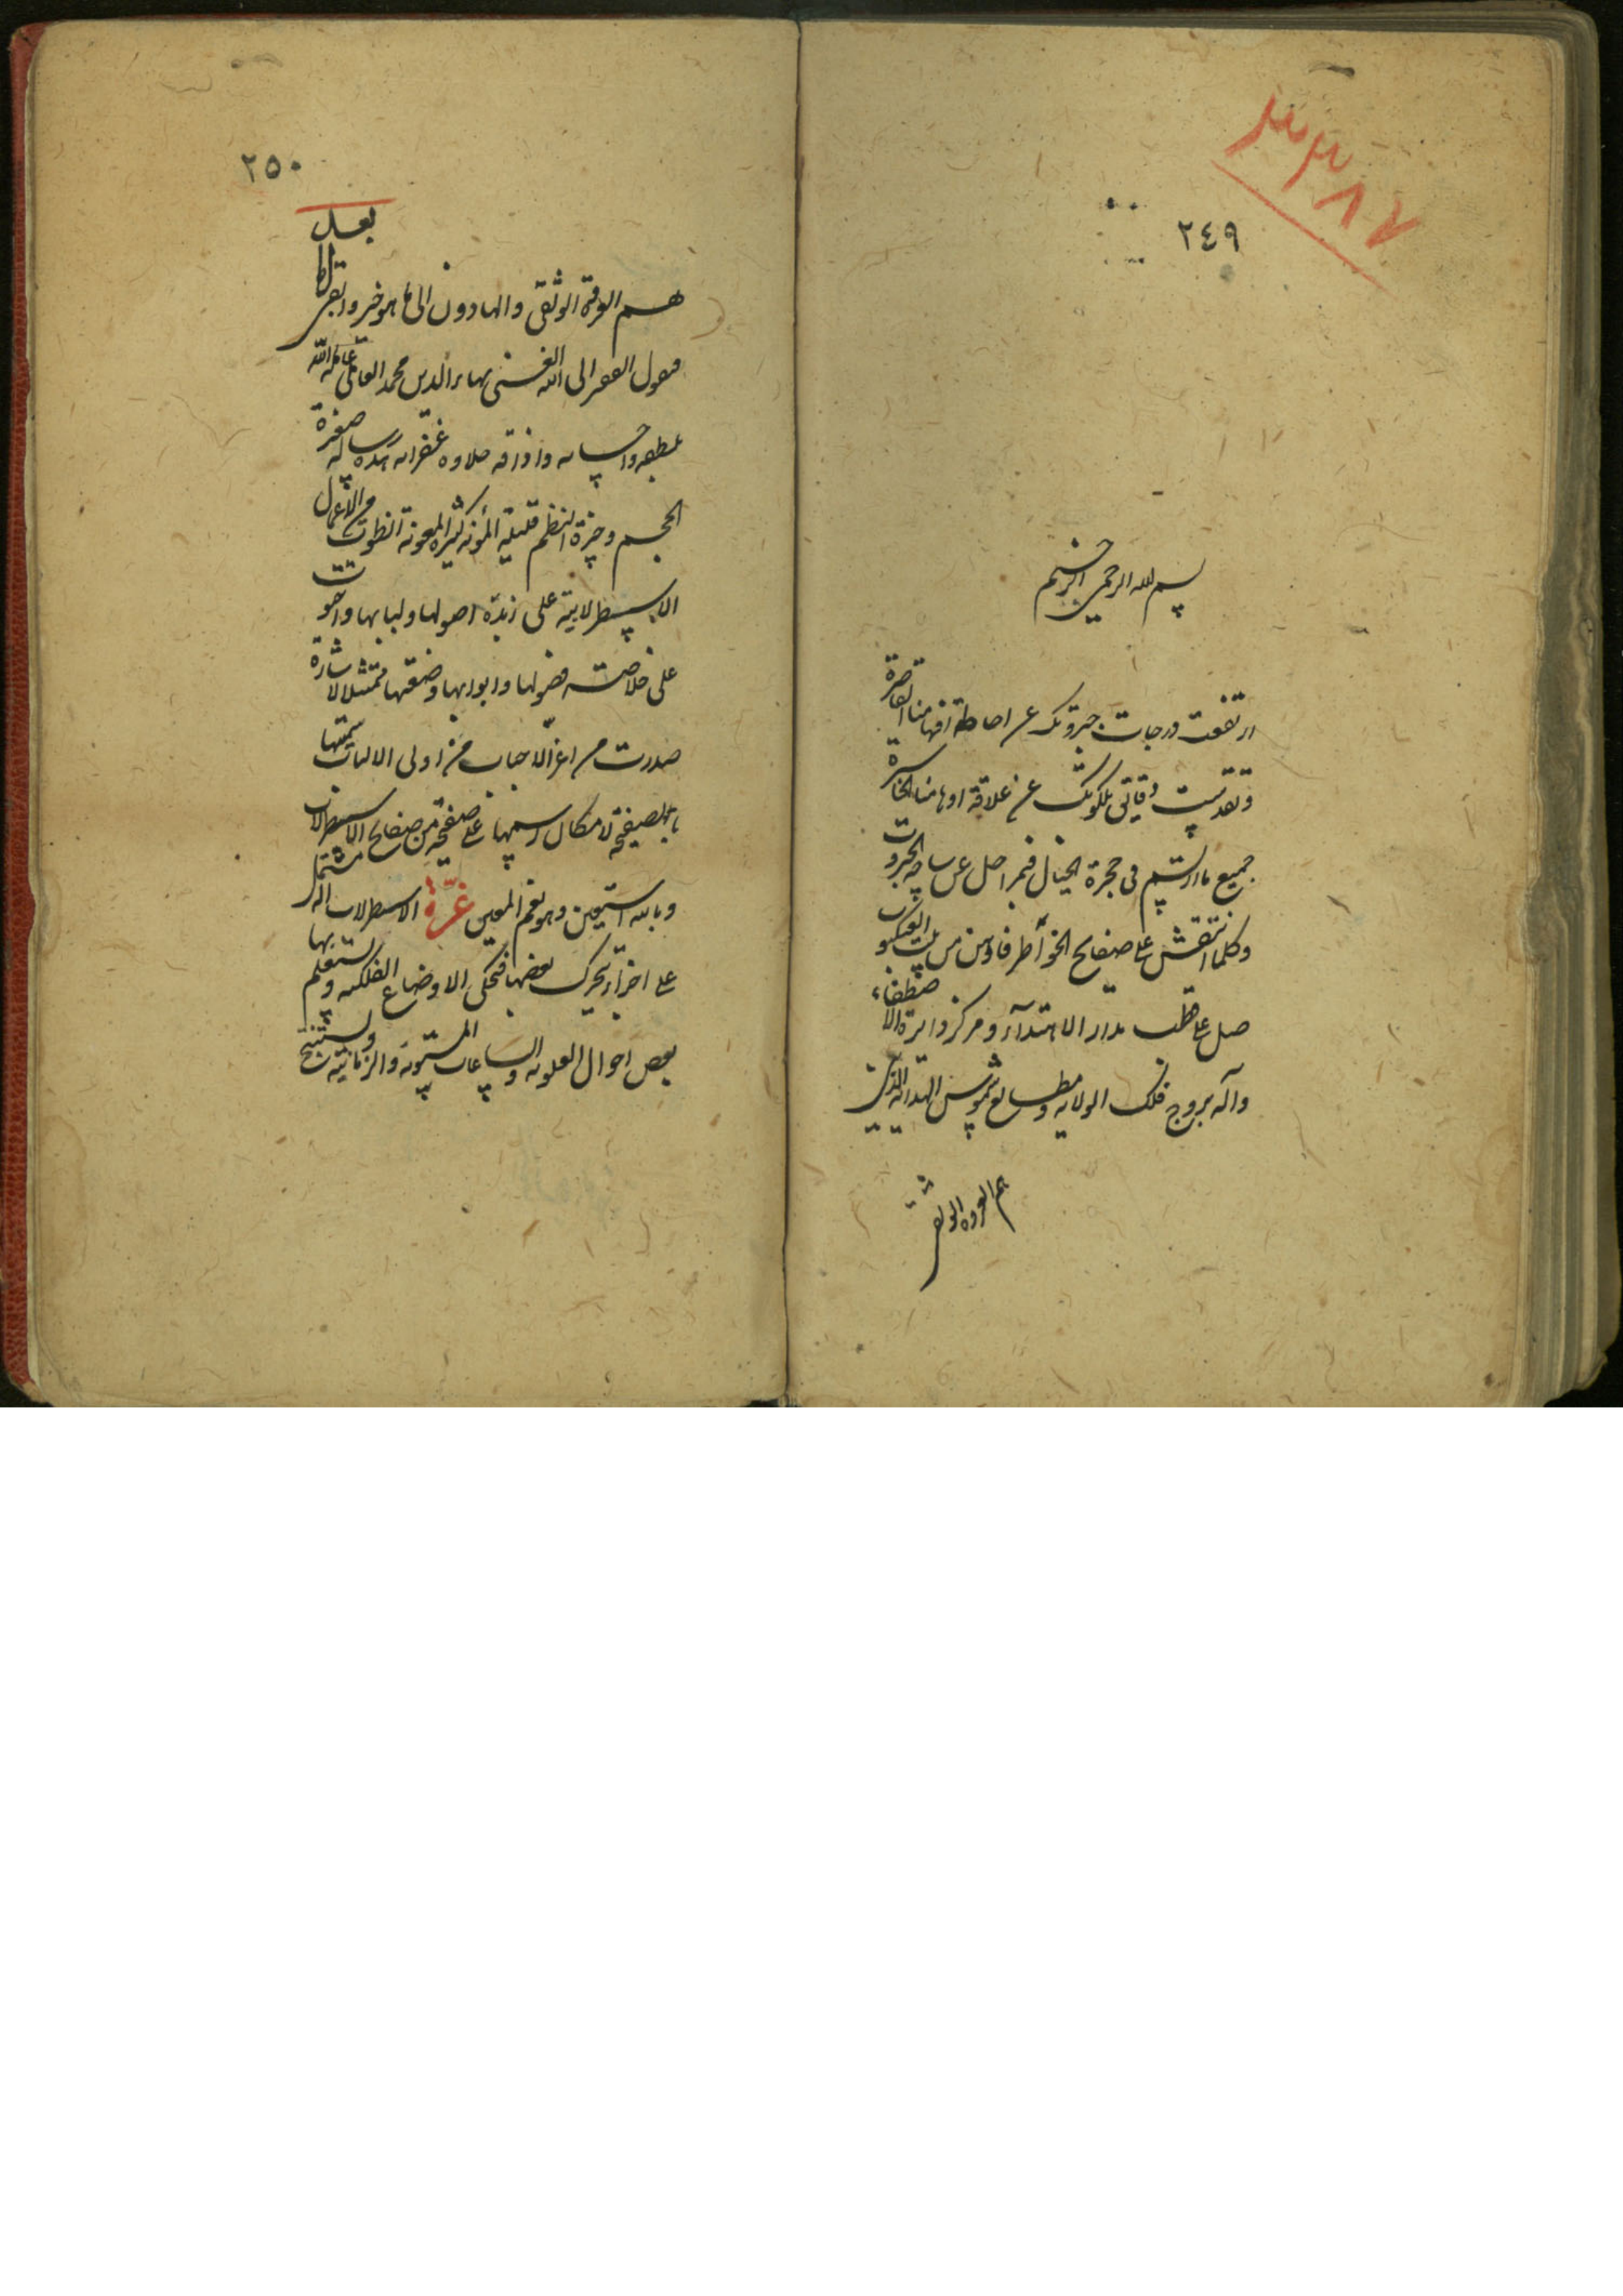 ٣٣٨٧
٢٤٩
بسم الله الرحمن الرحيم
ارتفعت درجات جبروتك عن احاطة افهامنا القاصرة
وتقدست دقايق ملكوتك عن علاقة اوهامنا الخاسرة
جميع ما ارتسم فى حجرة الخيال فبمراحل عن ساحة الجبروت
وكلما انتقش على صفايح الخواطر فاوهن من بيت العنكبوت
صل على قطب مدار الاهتدآء ومركز دايرة الاصطفاء
وآله بروج فلك الولايه ومطالع شموس الهدايه الذين
هم العروه الوثقى
٢٥٠
هم العروة الوثقى والهادون الى ما هو خير وابقى وبعد
فيقول الفقير الى الله الغنى بهاء الدين محمد العاملى عامله الله
بلطفه واحسانه واذاقه حلاوه غفرانه هذه رساله صغيرة
الحجم وجيزة النظم قليلة المؤنه كثيرة المعونة انطوت من الاعمال
الاسطرلابية على زبدة اصولها ولبابها واحتوت
على خلاصة فصولها وابوابها وضعتها ممتثلا لاشارة
صدرت من اعز الاحباب من اولى الالباب سميتها
بالصفيحة لامكان رسمها على صفحة من صفايح الاسطرلاب
وبالله استعين وهو نعم المعين غرّة الاسطرلاب اله مشتمل
على اجزآء يتحرك بعضها فتحكى الاوضاع الفلكيه ويستعلم بها
بعض احوال العلويه والساعات المستويه والزمانية ويستنتج